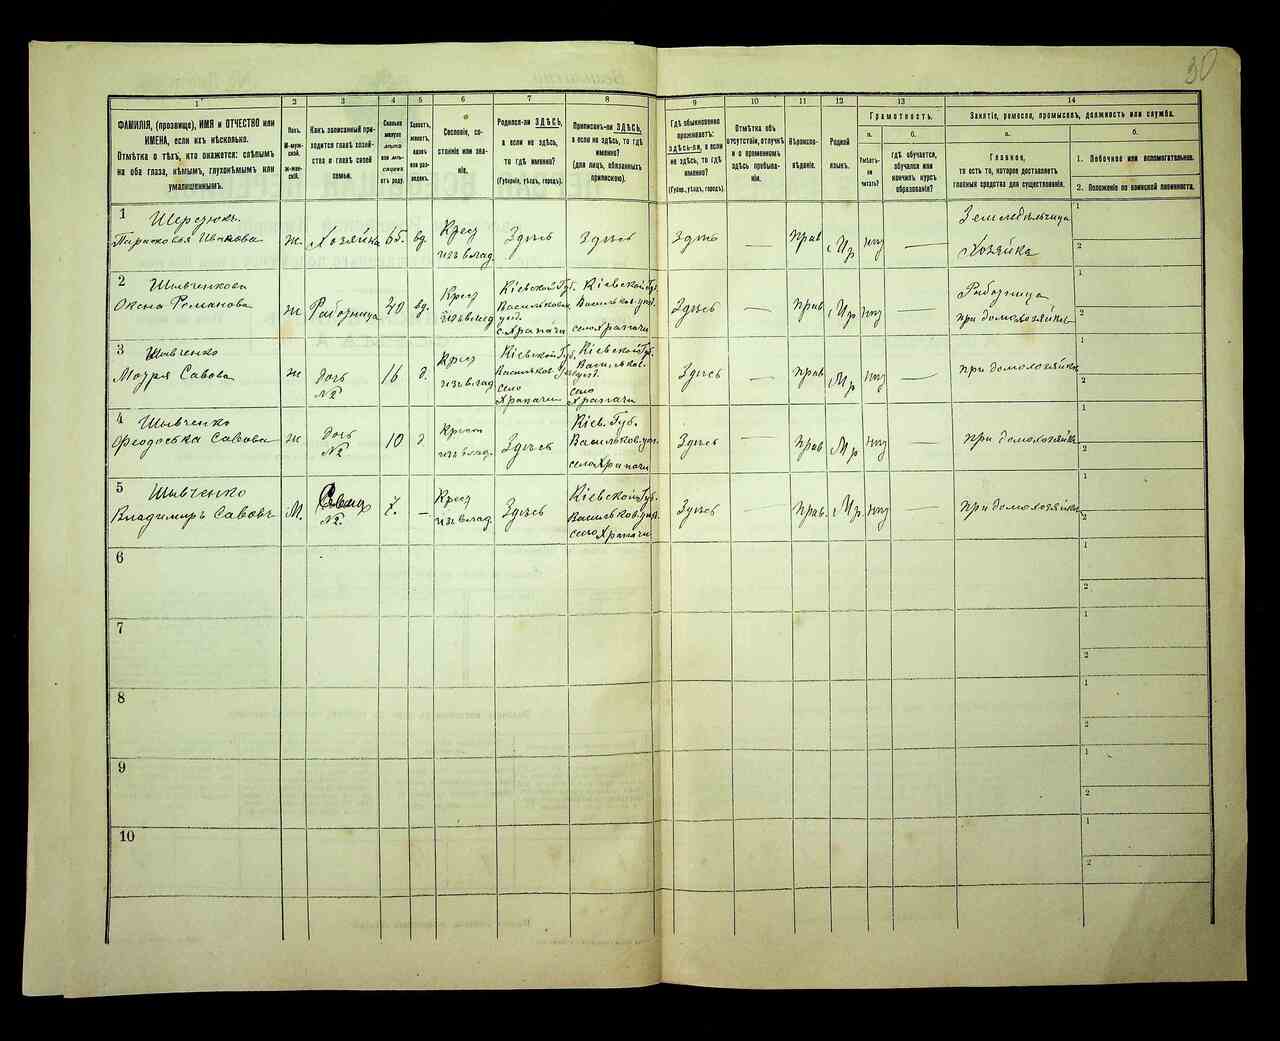 30
1 2 3 4 5 6 7 8 9 10 11 12 13 14
ФАМИЛІЯ, (прозвище), ИМЯ и ОТЧЕСТВО или
ИМЕНА, если ихъ нѣсколько.
Отмѣтка о тѣхъ, кто окажется: слѣпымъ
на оба глаза, нѣмымъ, глухонѣмымъ или
умалишеннымъ.
Полъ.
М-мужской.
Ж-женскій.
Какъ записанный приходится главѣ хозяйства и главѣ своей семьи.
Сословіе, состояніе или званіе.
Родился-ли ЗДѢСЬ,
а если не здѣсь,
то гдѣ именно?
(Губернія, уѣздъ, городъ).
Приписанъ-ли ЗДѢСЬ,
а если не здѣсь, то гдѣ
именно?
(для лицъ, обязанныхъ
припискою).
Гдѣ обыкновенно
проживаетъ:
здѣсь-ли, а если
не здѣсь, то гдѣ
именно?
(Губер., уѣздъ, городъ).
Отмѣтка объ
отсутствіи, отлучкѣ
и о временномъ
здѣсь пребываніи.
Вѣроисповѣданіе.
Родной
языкъ.
Грамотность.
а.
Умѣетъ-ли
читать?
б.
гдѣ обучается,
обучался или
кончилъ курсъ
образованія?
Занятіе, ремесло, промыселъ, должность или служба.
а.
Главное,
то есть то, которое доставляетъ
главныя средства для существованія.
б.
1. Побочное или вспомогательное.
2. Положеніе по воинской повинности.
1 Шердюкъ Землевѣльчица 1
Парасковья Иванова ж. Хозяйка 65. вд. Крест изъ влад. Здѣсь Здѣсь Здѣсь — Прав Мр нѣт — Хозяйка 2
2 Шывченкова Кіевской Губ. Кіевской Губ. Работница 1
Оксена Романова ж Работница 40 вд. Крест изъ влад Васильков. уѣзд. с. Храпачи Васильков. уѣзд. село Храпачи Здѣсь — Прав Мр нѣт — при домохозяйкѣ 2
3 Шывченко Кіевской Губ. Кіевской Губ. 1
Мотря Савова ж дочь №2 16 д. Крест изъ влад Васильков. Уѣзд село Храпачи Васильков. уѣзд. село Храпачи Здѣсь — Прав Мр нѣт — при домохозяйкѣ 2
4 Шывченко Кіев. Губ. 1
Феодоська Савова ж дочь №2 10 д Крест изъ влад. Здѣсь Васильков. уѣз. село Храпачи Здѣсь — Прав Мр нѣт — при домохозяйкѣ 2
5 Шывченко Кіевской Губ. 1
Владимиръ Савовъ М. №2. 7. — Крест изъ влад. Здѣсь Васильков. уѣз. село Храпачи Здѣсь — Прав. Мр. нѣт — при домохозяйкѣ 2
6 1
2
7 1
2
8 1
2
9 1
2
10 1
2